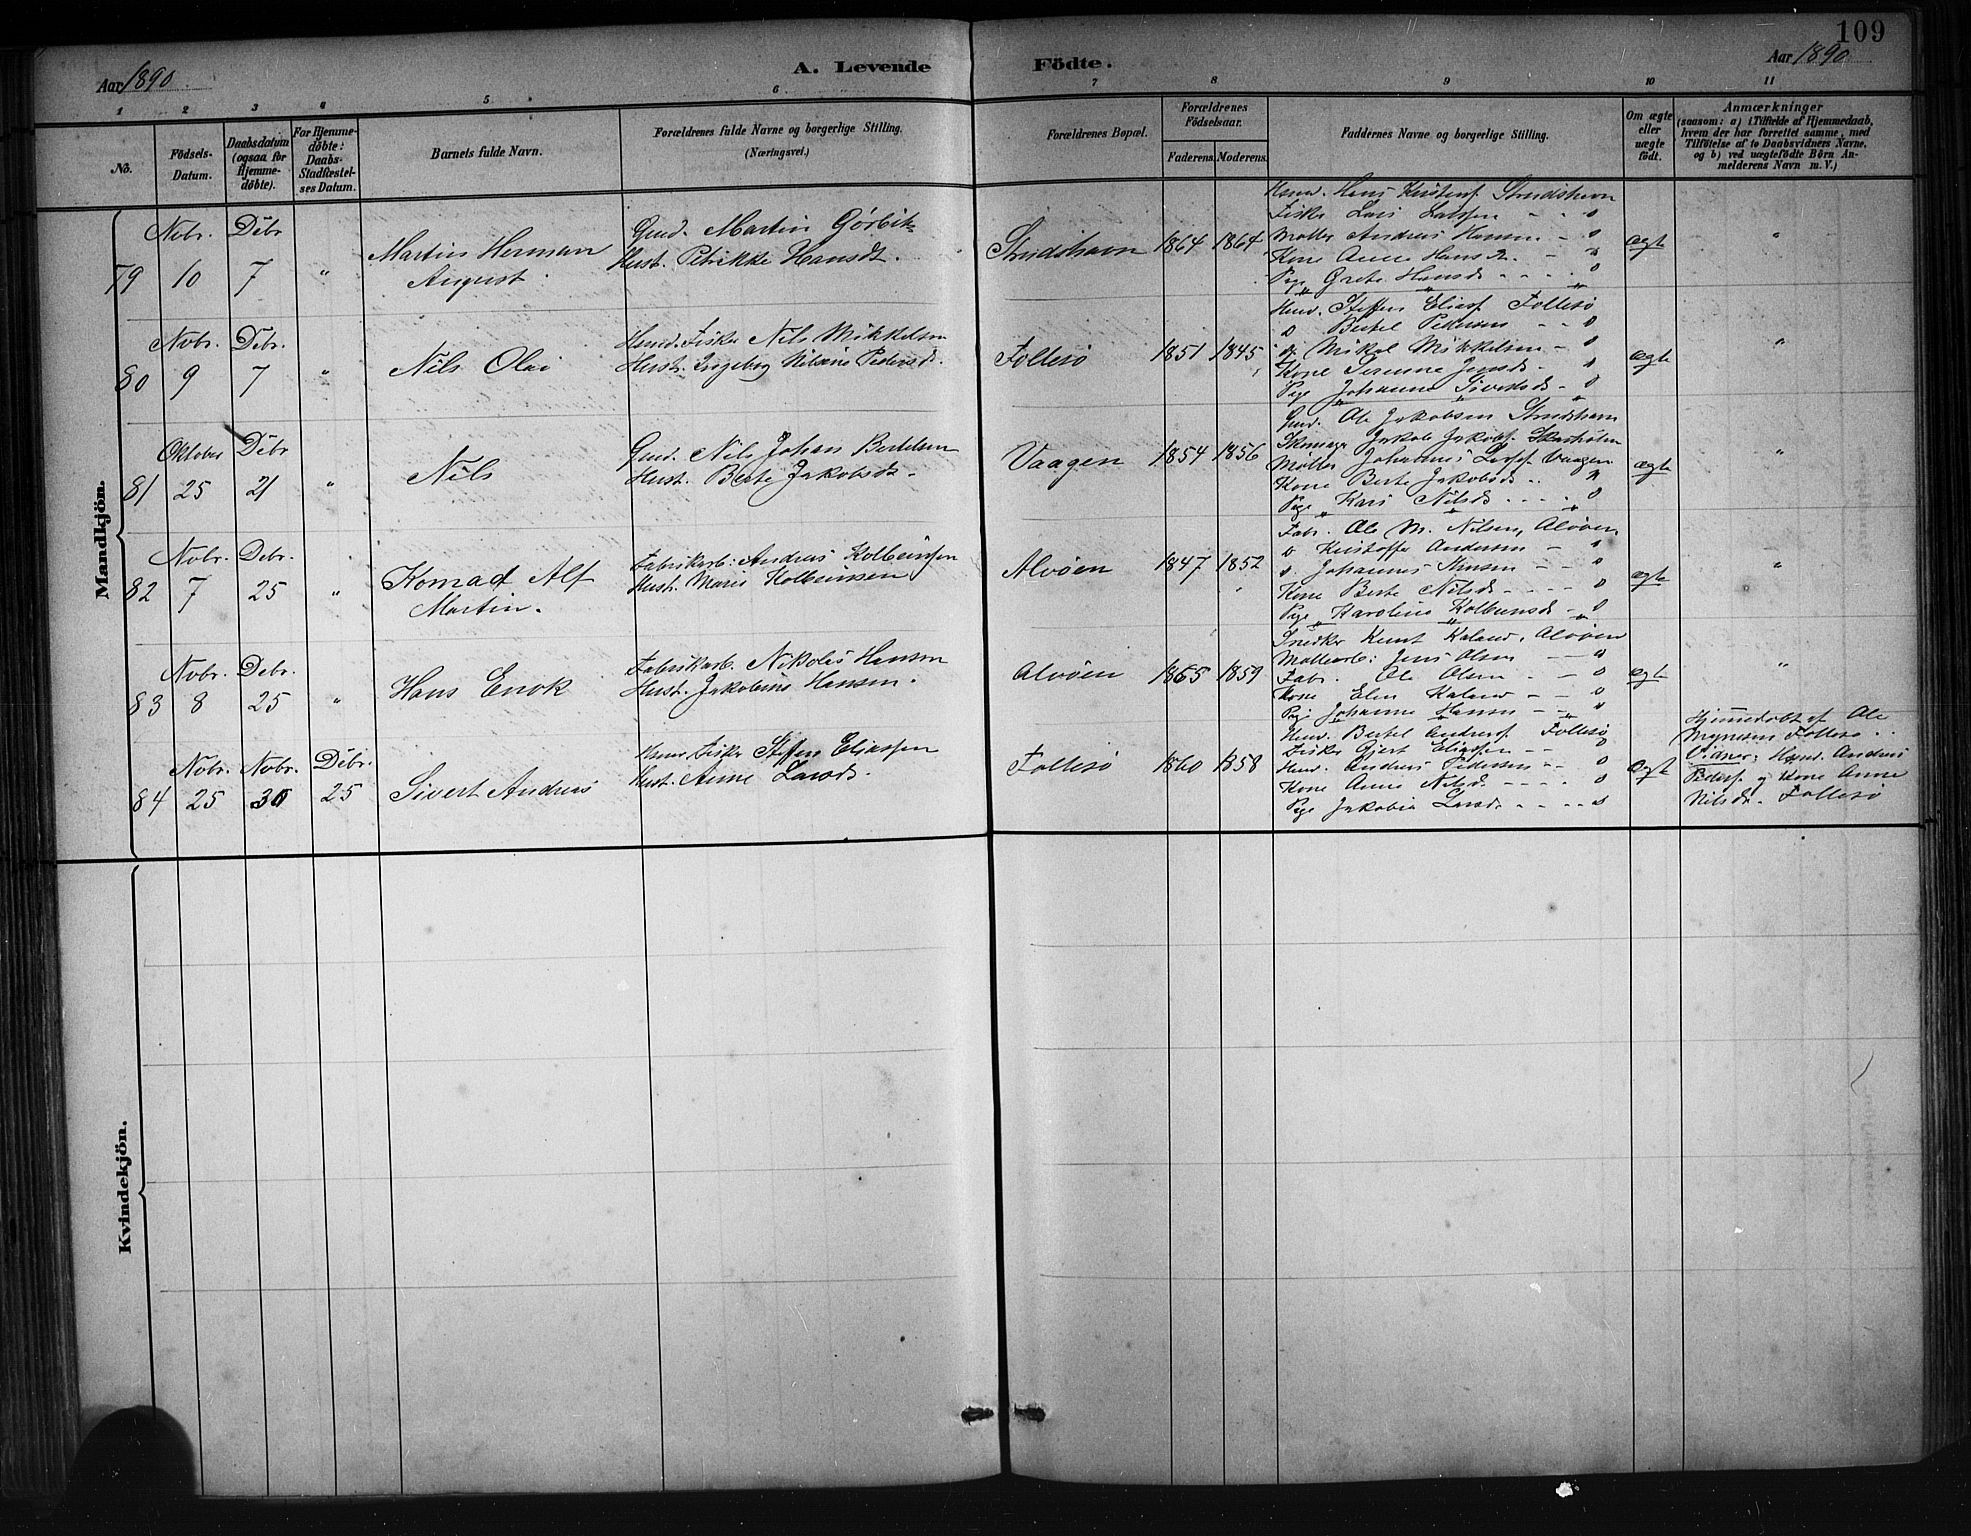 109
Aar 1890
A. Levende Födte.
Aar 1890
1 2 3 4 5 6 7 8 9 10 11
No.
Födsels-Datum.
Daabsdatum (ogsaa for Hjemme-döbte).
For Hjemme-döbte: Daabs-Stadfæstel-ses Datum.
Barnets fulde Navn.
Forældrenes fulde Navne og borgerlige Stilling.
(Næringsvei.)
Forældrenes Bopæl.
Forældrenes Födselsaar.
Faderens. Moderens.
Faddernes Navne og borgerlige Stilling.
Om ægte eller uægte födt.
Anmærkninger
(saasom: a) i Tilfælde af Hjemmedaab,
hvem der har forrettet samme, med
Tilföielse af to Daabsvidners Navne,
og b) ved uægtefödte Börn An-
melderens Navn m. V.)
Mandkjön.
79 Nobr. 10 Debr 7 "
Martin Herman
August
Gmd. Martin
Hust. Petrikke Hansdt.
Strudshavn 1864 1864
Hmd. Hans Kristens. Strudshavn
Fisker Lars Larssen - - o
Møller Andreas Hansen - o
Kone Anne Hansd. - o
Pige Grete Hansd. - - - o
ægte "
80 Nobr. 9 Debr. 7 "
Nils Olai
Hmd. Fisker Nils Mikkelsen
Hust. Ingeborg Pedersd.
Follesö 1851 1845
Hmd. Steffen Eliass. Follesö
o Bertel Pedersen - - o
Mikal Mikkelsen - o
Kone Jensd. - o
Pige Johanne Siversd. - o
ægte "
81 Oktober 25 Debr 21 "
Nils
Gmd. Nils Johan Bertelsen
Hust. Berte Jakobsdt.
Vaagen 1854 1856
Gmd. Ole Jakobsen Strudshavn
Skomager Jakob Jakobs.
Møller Johannes Vaagen
Kone Berte Jakobsd. - - o
Pige Kari Nilsd. - - - o
ægte "
82 Nobr. 7 Debr. 25 "
Konrad Alf
Martin.
Fabrikarb: Andreas Kolbeinsen
Hust. Marie Kolbeinsen
Alvöen 1847 1852
Fabr. Ole M. Nilsen, Alvöen.
o Kristoffer Andersen - o
o. Johannes - - o
Kone Berte Nilsd. - - - o
Pige Karoline Kolbeinsd. - o
ægte "
83 Nobr. 8 Debr. 25 "
Hans Enok
Fabrikarb. Nikolai Hansen
Hust. Jakobine Hansen.
Alvöen 1865 1859
Snedker Knut Kaland, Alvöen
Møllearb: Jens Olsen - - o
Fabr. Ole Olsen - - o
Kone Elen Kaland - - o
Pige Johanne Hansen - - o
ægte "
84 Nobr. 25 Nobr. 30 Debr. 25
Sivert Andreas
Hmd. Fisker Steffen Eliassen
Hust. Anne Larsd.
Follesö 1860 1858
Hmd. Bertel Anders. Follesö
Fisker Gjert Eliassen - - o
Hmd. Andreas Pedersen - - o
Kone Anne Nilsd. - - - o
Pige Jakobia Larsd. - - - o
ægte
Hjemmedøbt af Ole
Follesö.
Vidner: Hmd. Andreas
Peders. og Kone Anne
Nilsd. Follesö
Kvindekjön.